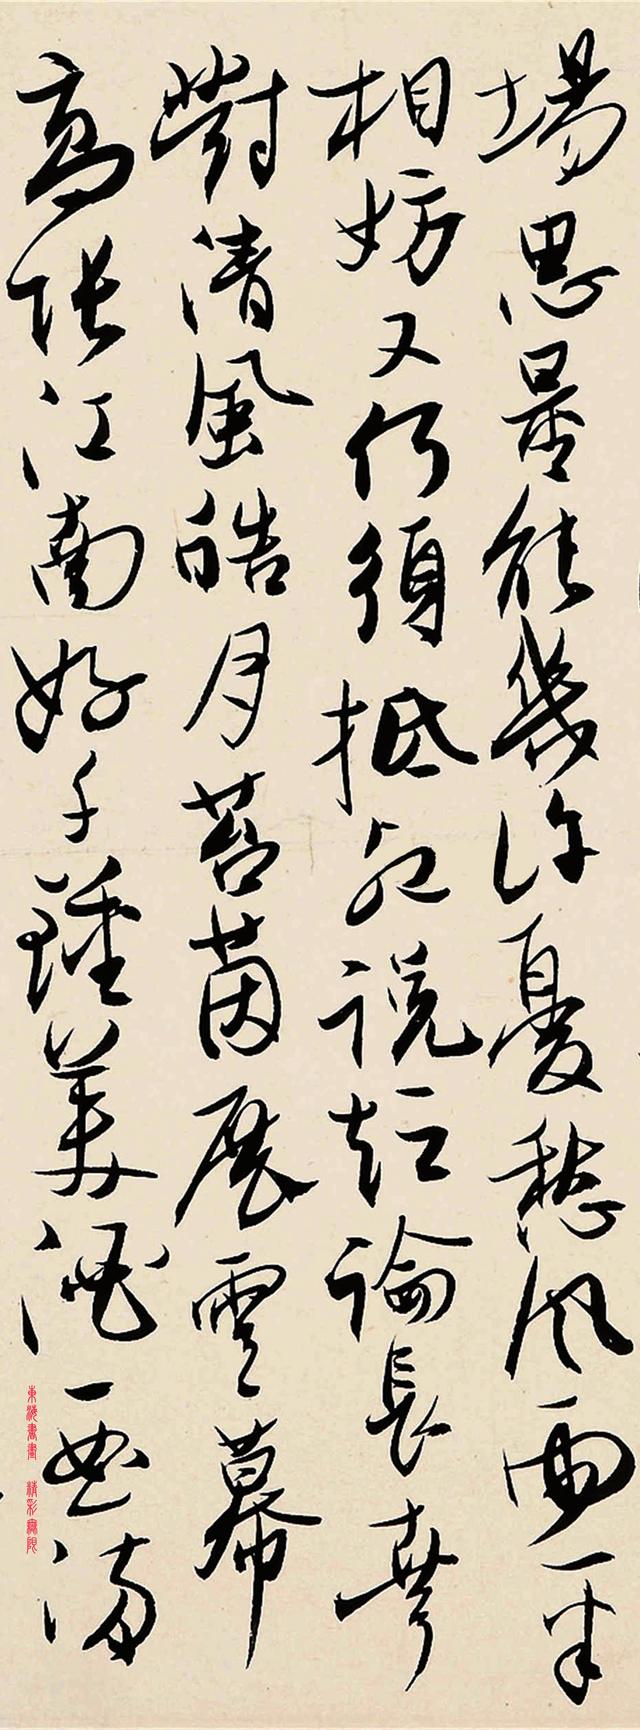 場思量能幾許憂愁風雨一半
相妨又何須抵死說短論長幸
對清風皓月苔茵展雲幕
高張江南好千鍾美酒一曲滿
東海書畫 精彩無限